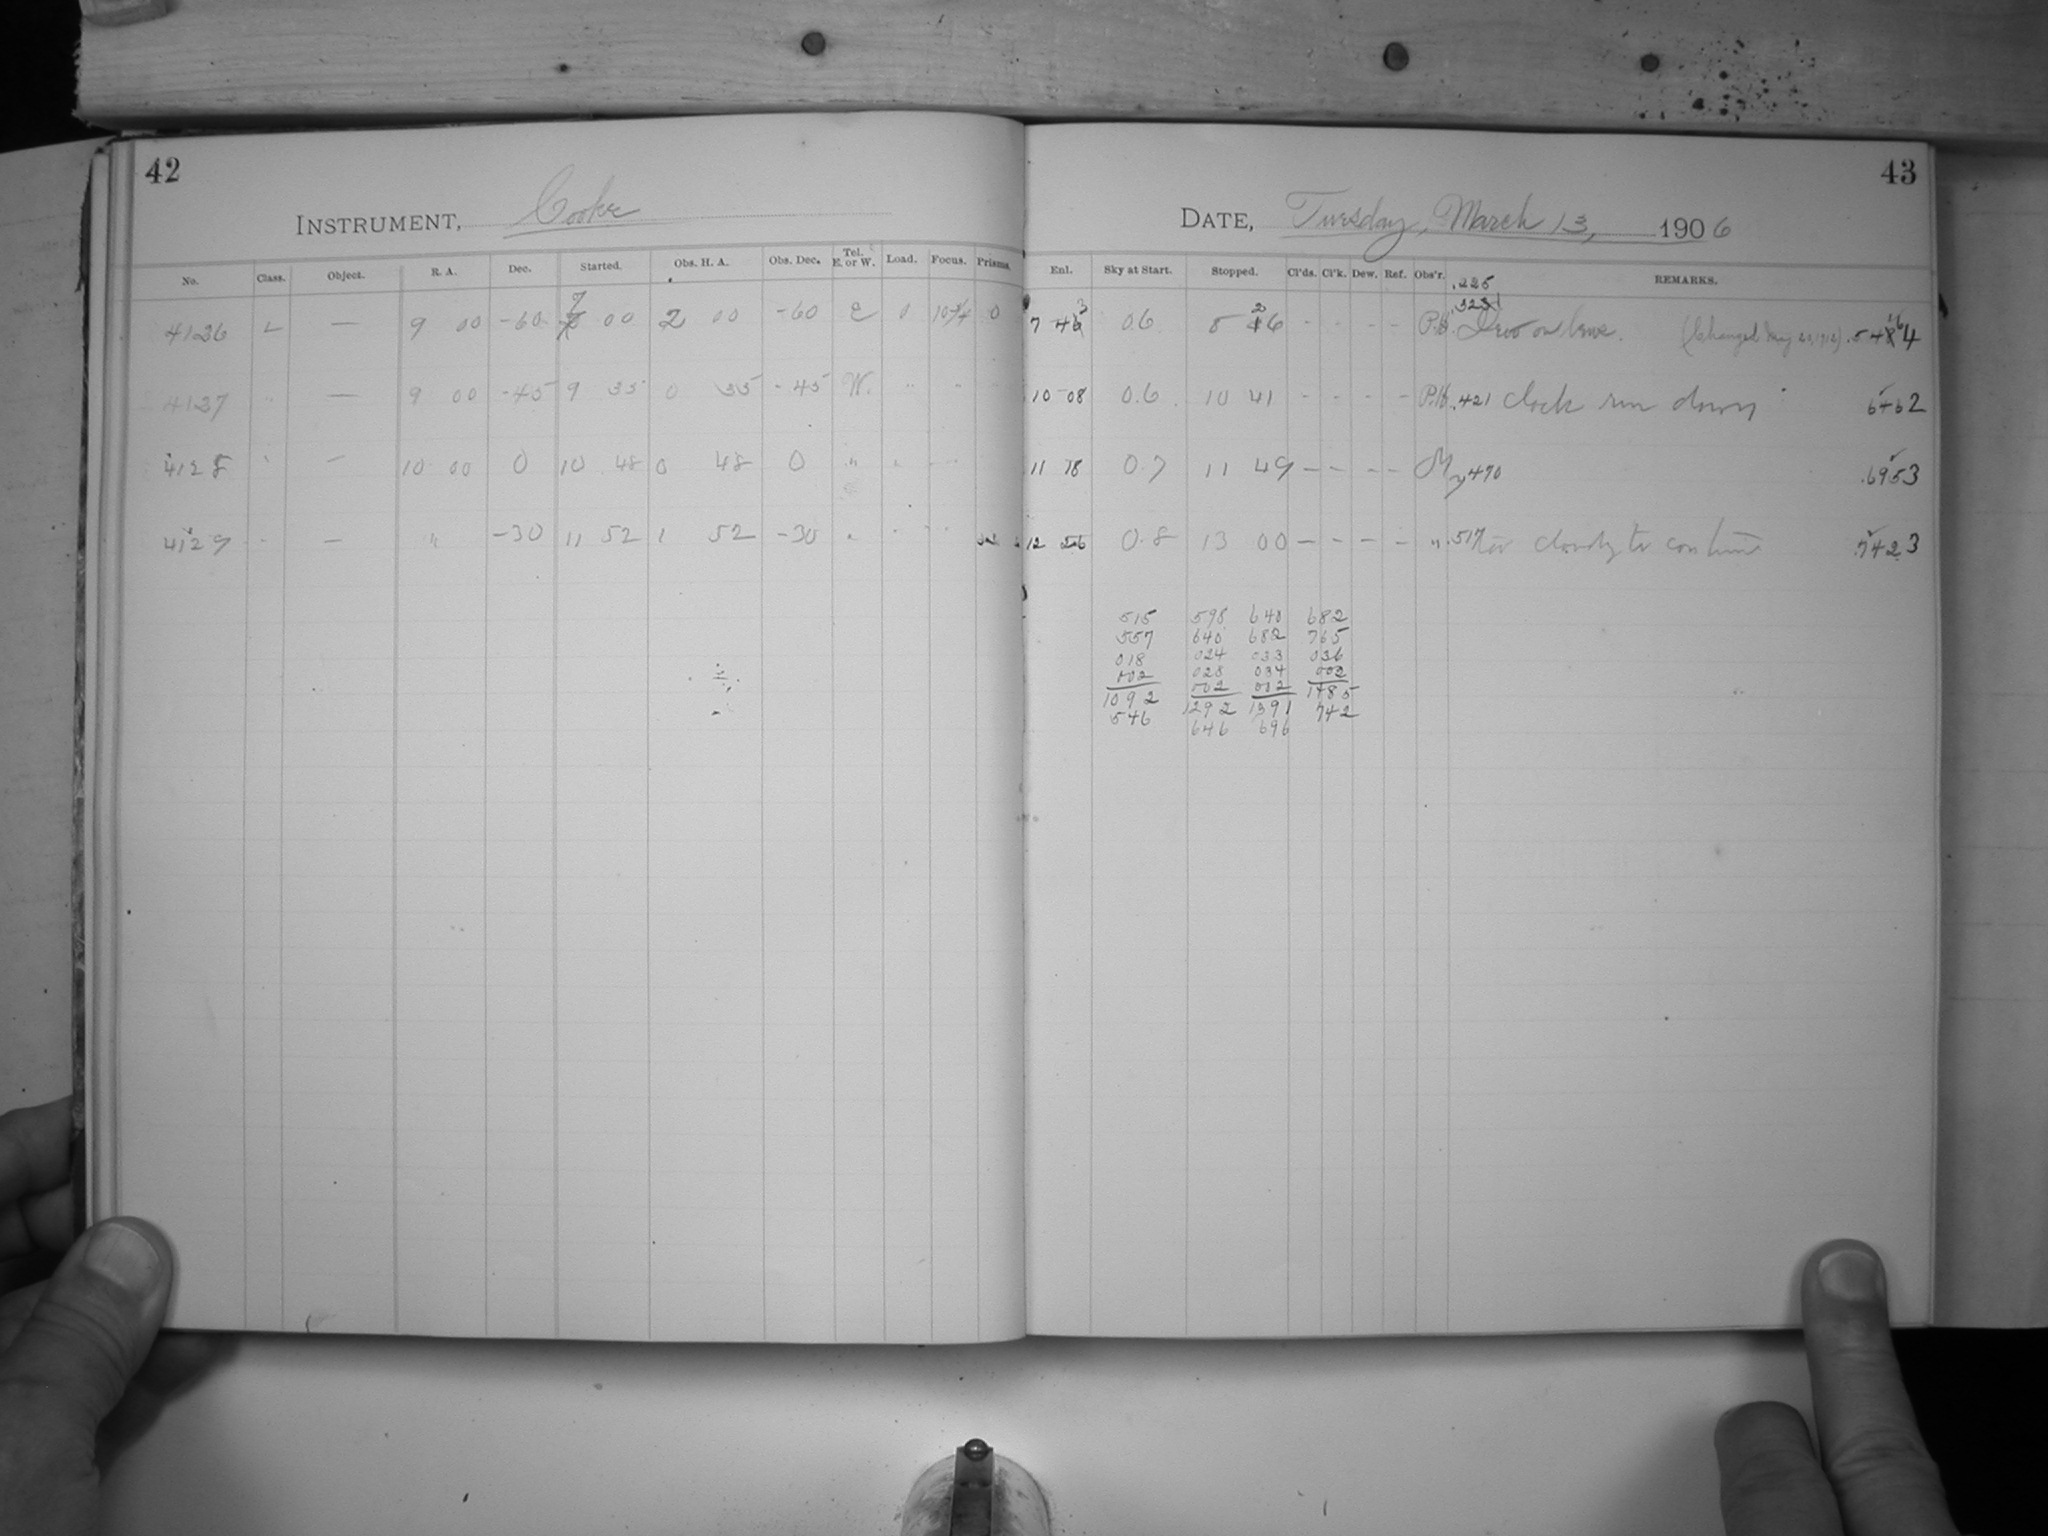 42
INSTRUMENT, Cooke
No. Class. Object. R. A. Dec. Started. Obs. H. A. Obs. Dec. Tel. E. or W. Load. Focus. Prisms.
4136 L — 9 00 -60 7 00 2 00 -60 E 0 0
4137 " — 9 00 -45 9 35 0 35 -45 W. " "
4128 " — 10 00 0 10 48 0 48 0 "
4129 — " -30 11 52 1 52 -30 "
43
DATE, Tuesday, March 13, 1906
Enl. Sky at Start. Stopped. Cl'ds. Cl'k. Dew. Ref. Obs'r. REMARKS.
.225
7 43 0.6 8 26 - - - - .323 (Changed May 20, 1912) .5464
10 08 0.6 10 41 - - - - P.H. .421 Clock run down 6462
11 18 0.7 11 49 - - - - M .470 .6953
12 26 0.8 13 00 - - - - " .517 Too cloudy to continue .7423
515 598 640 682
557 640 682 765
018 024 033 036
002 028 034 002
1092 002 002 1485
546 1292 1391 742
646 696